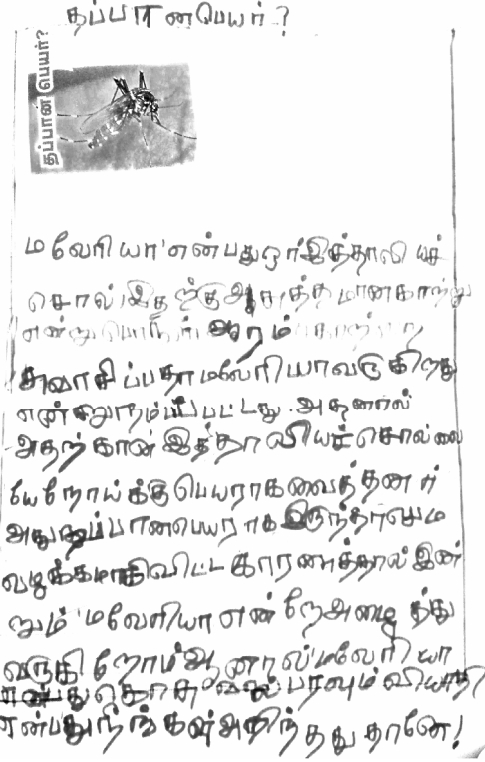 தப்பான பெயர்?
தப்பான பெயர்?
மலேரியா' என்பது ஓர் இத்தாலியச்
சொல் இதற்கு அசுத்தமான காற்று
என்று பொருள் ஆரம்
சுவாசிப்பதா மலேரியா வருகிறது
என்று நம்ப்பபட்டது. அதனால்
அதற்கான இத்தாலியச் சொல்லை
யே நோய்க்கு பெயராக வைத்தனர்
அது தப்பான பெயராக இருந்தாலும்
வழக்கமாகிவிட்ட காரணத்தால் இன்
றும் 'மலேரியா என்றே அழைத்து
வருகிறோம் ஆனால் மலேரியா
என்பது கொசுவால் பரவும் வியாதி
என்பது நீங்கள் அறிந்தது தானே!